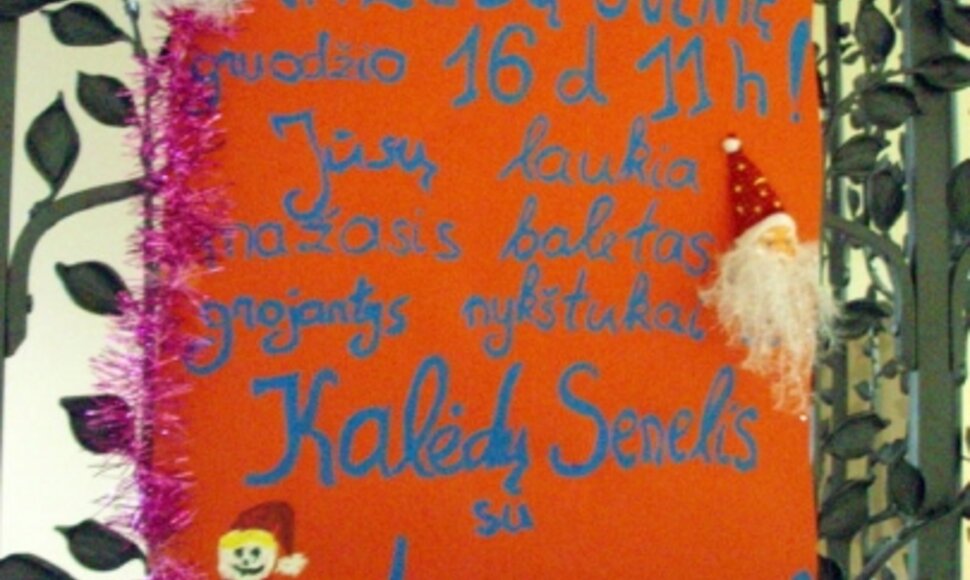 gruodžio 16 d 11 h!
Jūsų laukia
mažasis baletas
grojantys nykštukai
Kalėdų Senelis
su